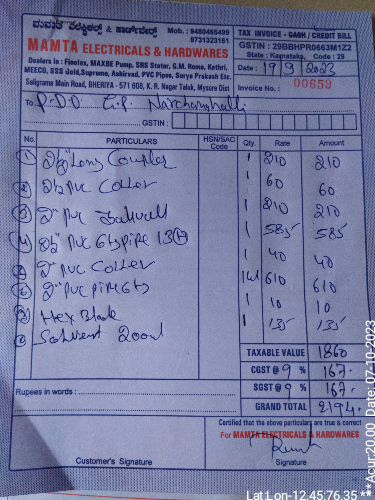 ಮಮತ ಎಲೆಕ್ಟ್ರಿಕಲ್ಸ್ & ಹಾರ್ಡ್‌ವೇರ್ಸ್
Mob. : 9480465499
9731323161
MAMTA ELECTRICALS & HARDWARES
Dealers in : Finolex, MAXBE Pump, SRS Stater, G.M. Roma, Kethri,
MEECO, SSS Gold, Supreme, Ashirvad, PVC Pipes, Surya Prakash Etc.
Saligrama Main Road, BHERIYA - 571 608, K. R. Nagar Taluk, Mysore Dist
TAX INVOICE - CASH / CREDIT BILL
GSTIN : 29BBHPR0663M1Z2
State : Karnataka, Code : 29
Date : 19/9/2023
Invoice No. : 00659
To P.D.O G.P.
GSTIN :
No. PARTICULARS HSN/SAC Code Qty. Rate Amount
1 Long Coupler 1 210 210
2 PVC Coller 1 60 60
3 2" PVC 1 210 210
4 PVC Pipe 1 585 585
2" PVC Coller 1 40 40
2" PVC Pipe 610 610
Hex Blade 1 10 10
Solvent 200ml 1 135 135
TAXABLE VALUE 1860
CGST @ 9 % 167.
SGST @ 9 % 167.
Rupees in words :
GRAND TOTAL 2194.
Certified that the above particulars are true & correct
For MAMTA ELECTRICALS & HARDWARES
Customer's Signature
Signature
Lat Lon-12.45:76.35
***Acur:20.00 Date, 07-10-2023